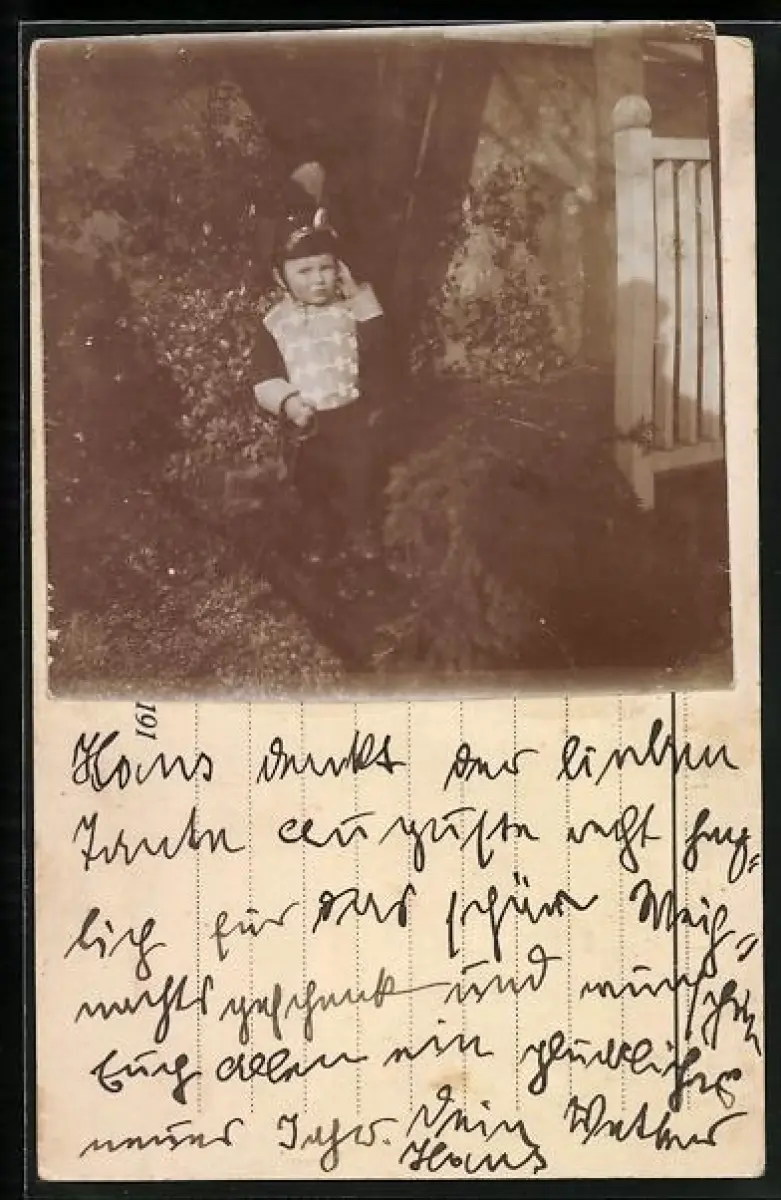 191
Hans dankt der lieben
Tante Auguste recht herz=
lich für das schöne Weih=
nachtsgeschenk und wünscht
Euch allen ein glückliches
neues Jahr. Dein Vetter
Hans